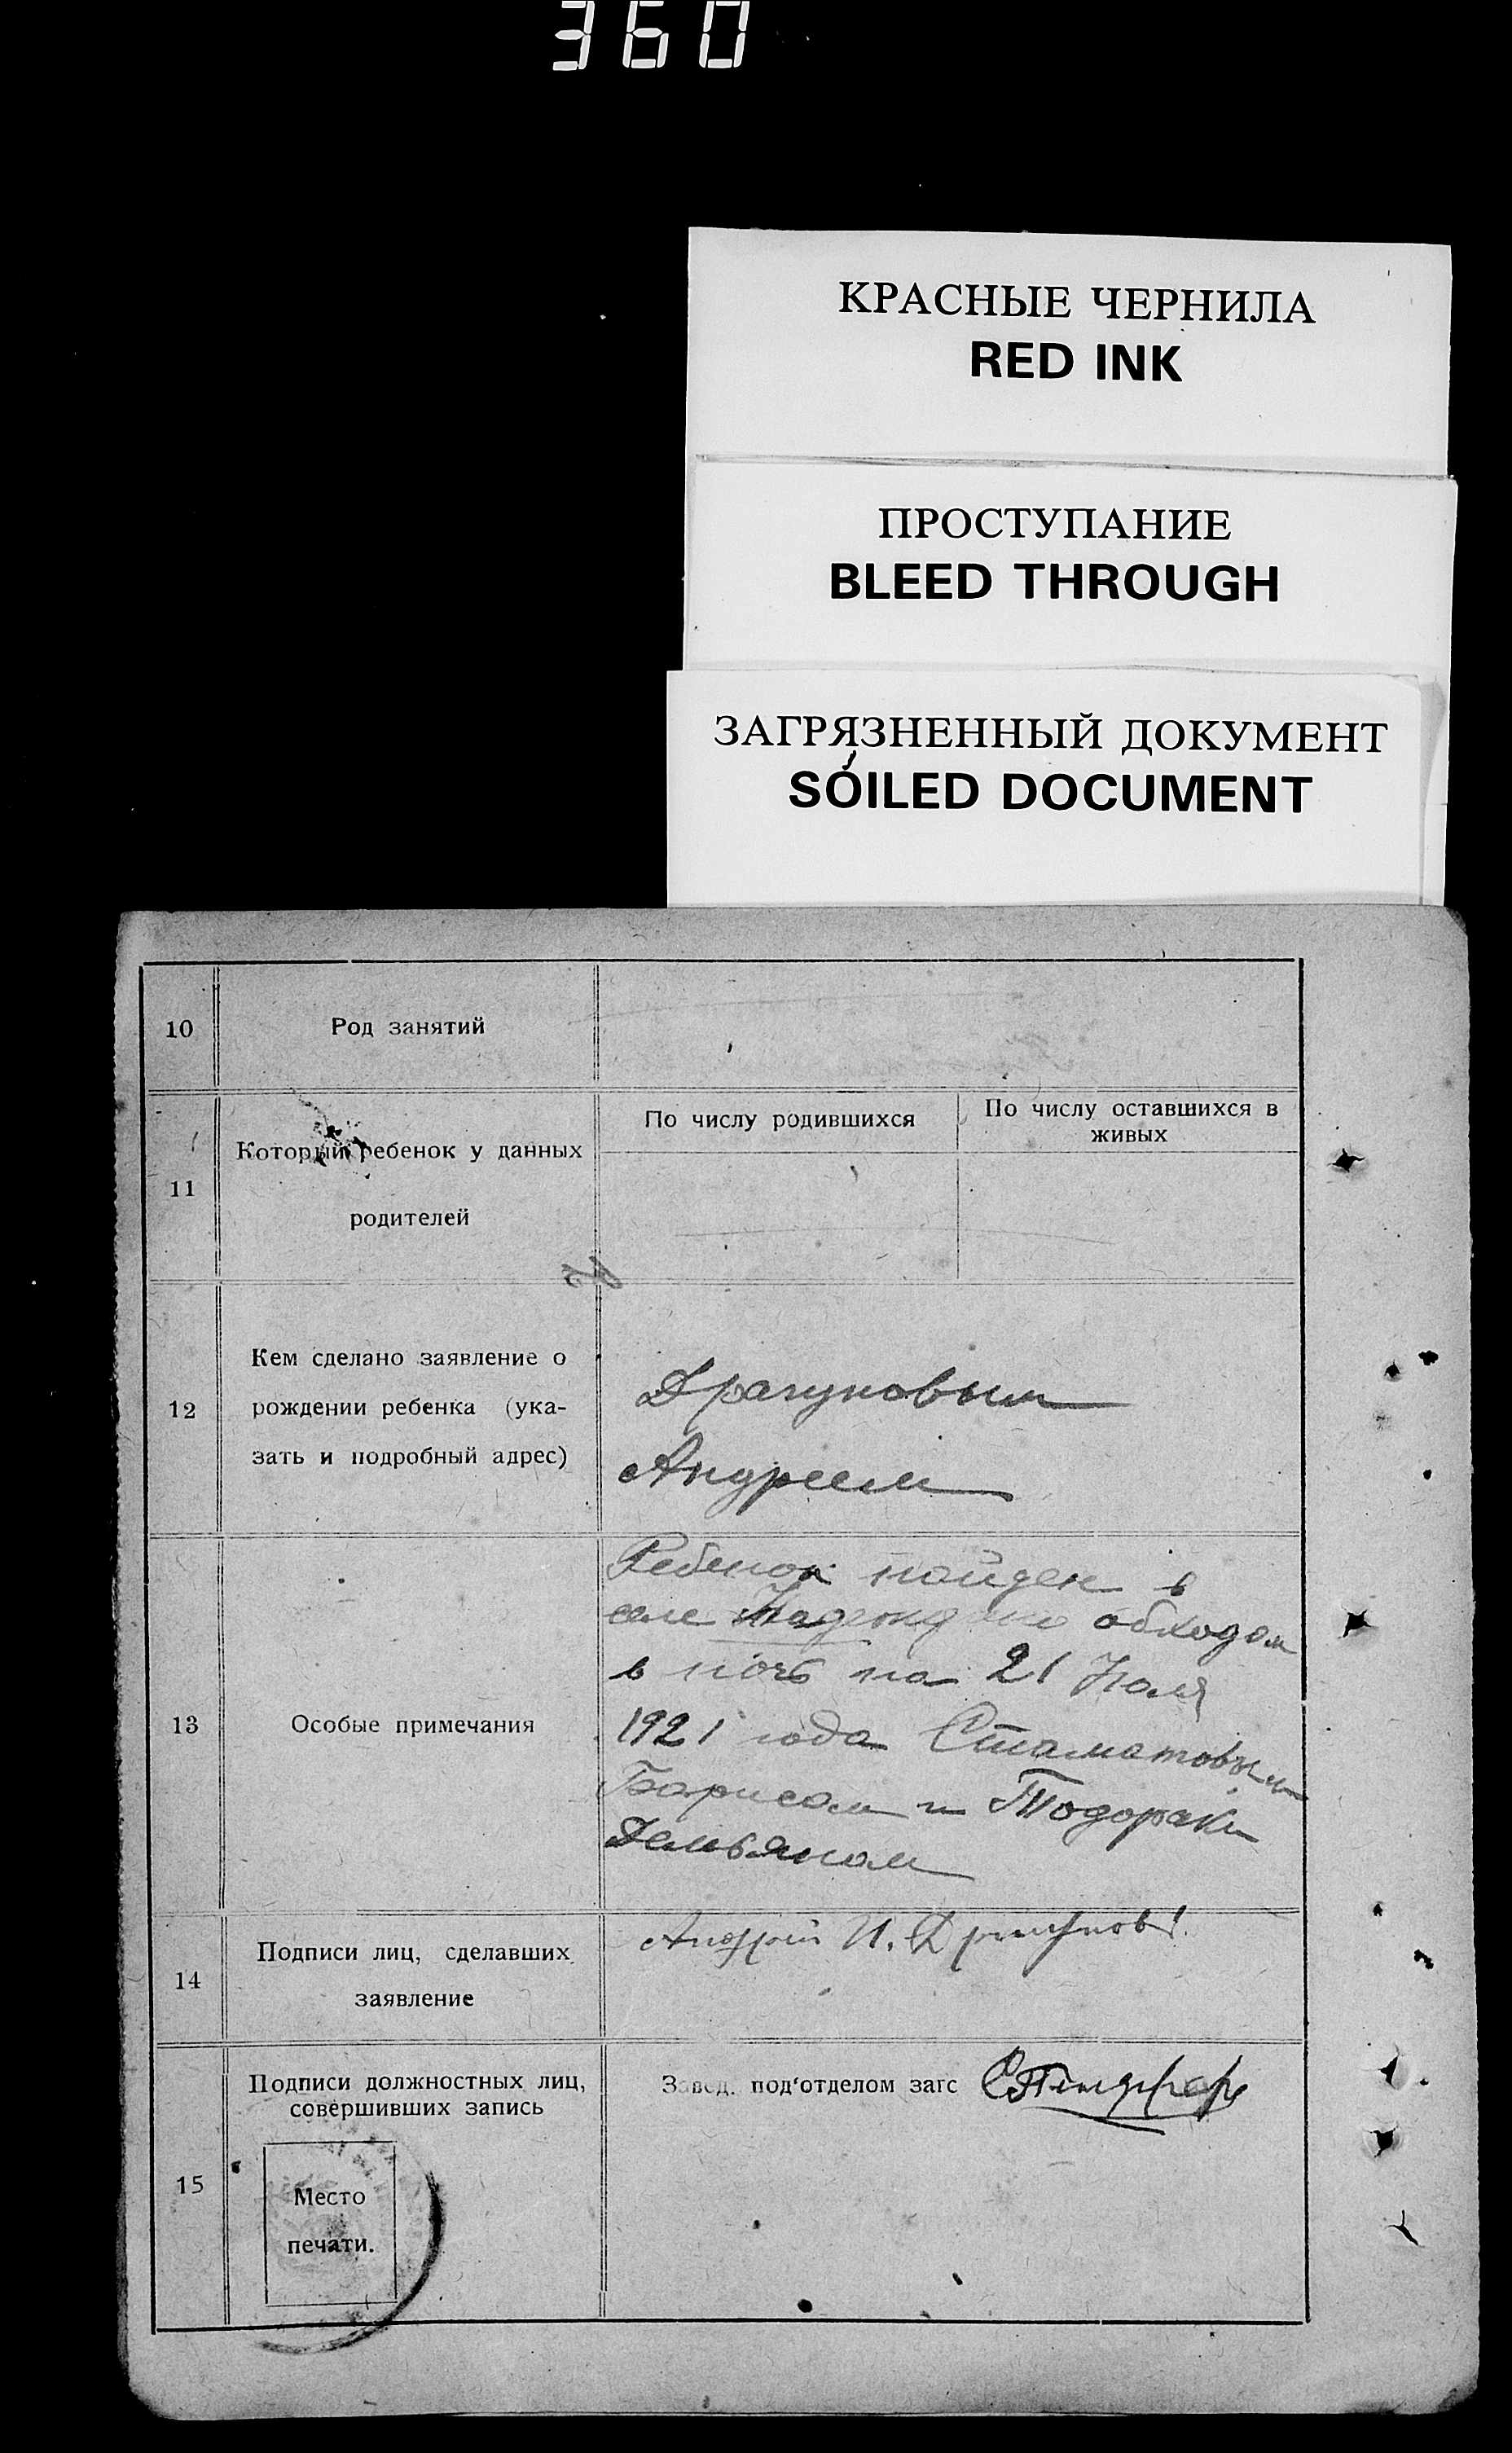 360
КРАСНЫЕ ЧЕРНИЛА
RED INK
ПРОСТУПАНИЕ
BLEED THROUGH
ЗАГРЯЗНЕННЫЙ ДОКУМЕНТ
SOILED DOCUMENT
10
Род занятий
11
Который ребенок у данных
родителей
По числу родившихся
По числу оставшихся в
живых
12
Кем сделано заявление о
рождении ребенка (ука-
зать и подробный адрес)
Драгуновым
Андреем
13
Особые примечания
Ребенок найден в
селе обходом
в ночь на 21 Июля
1921 года Стаматовым
Борисом и Тодораки
Демьяном
14
Подписи лиц, сделавших
заявление
Андрей И. Драгунов
15
Подписи должностных лиц,
совершивших запись
Место
печати.
Завед. под'отделом загс